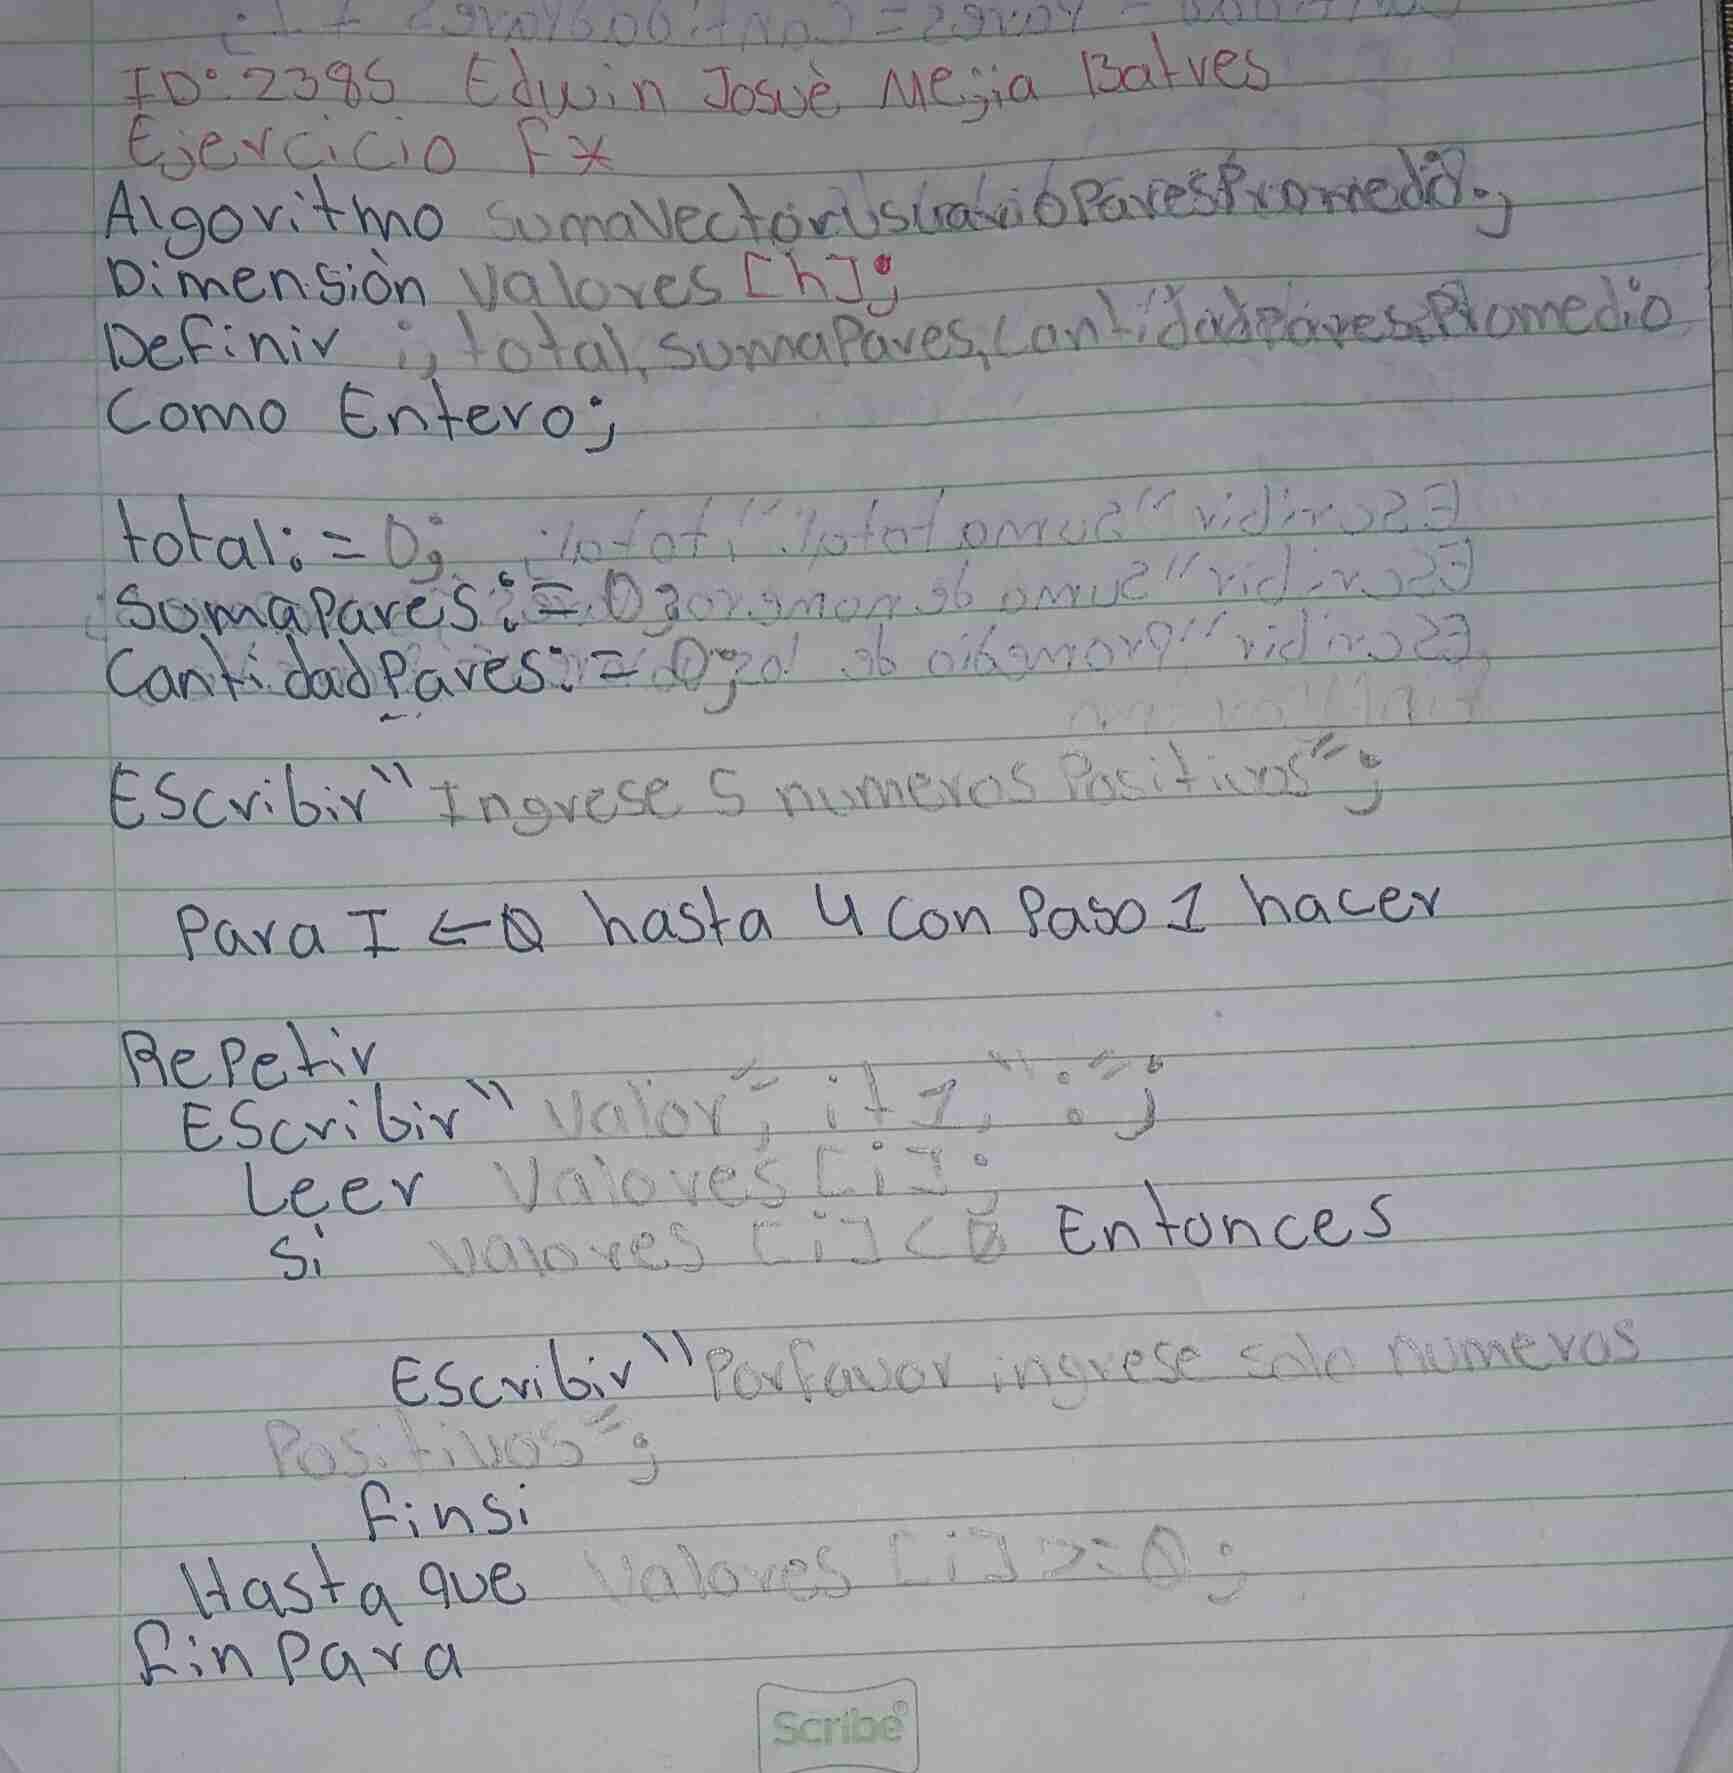 ID: 2385 Edwin Josuè Mejia Batves
Ejercicio Fx
Algoritmo sumaVectorUsuarioParesPromedio;
Dimensiòn Valores [h];
Definir i, total, sumaPares, CantidadPares, Promedio
Como Entero;
total: = 0;
SumaPares: = 0;
CantidadPares: = 0;
EScribir "Ingrese 5 numeros Positivos";
Para I ← 0 hasta 4 con Paso 1 hacer
Repetir
EScribir "Valor", i+1, ":";
Leer Valores [i];
Si valores [i] < 0 Entonces
EScribir "Porfavor ingrese solo numeros
Positivos";
finsi
Hasta que Valores [i] >= 0;
fin Para
Scribe®